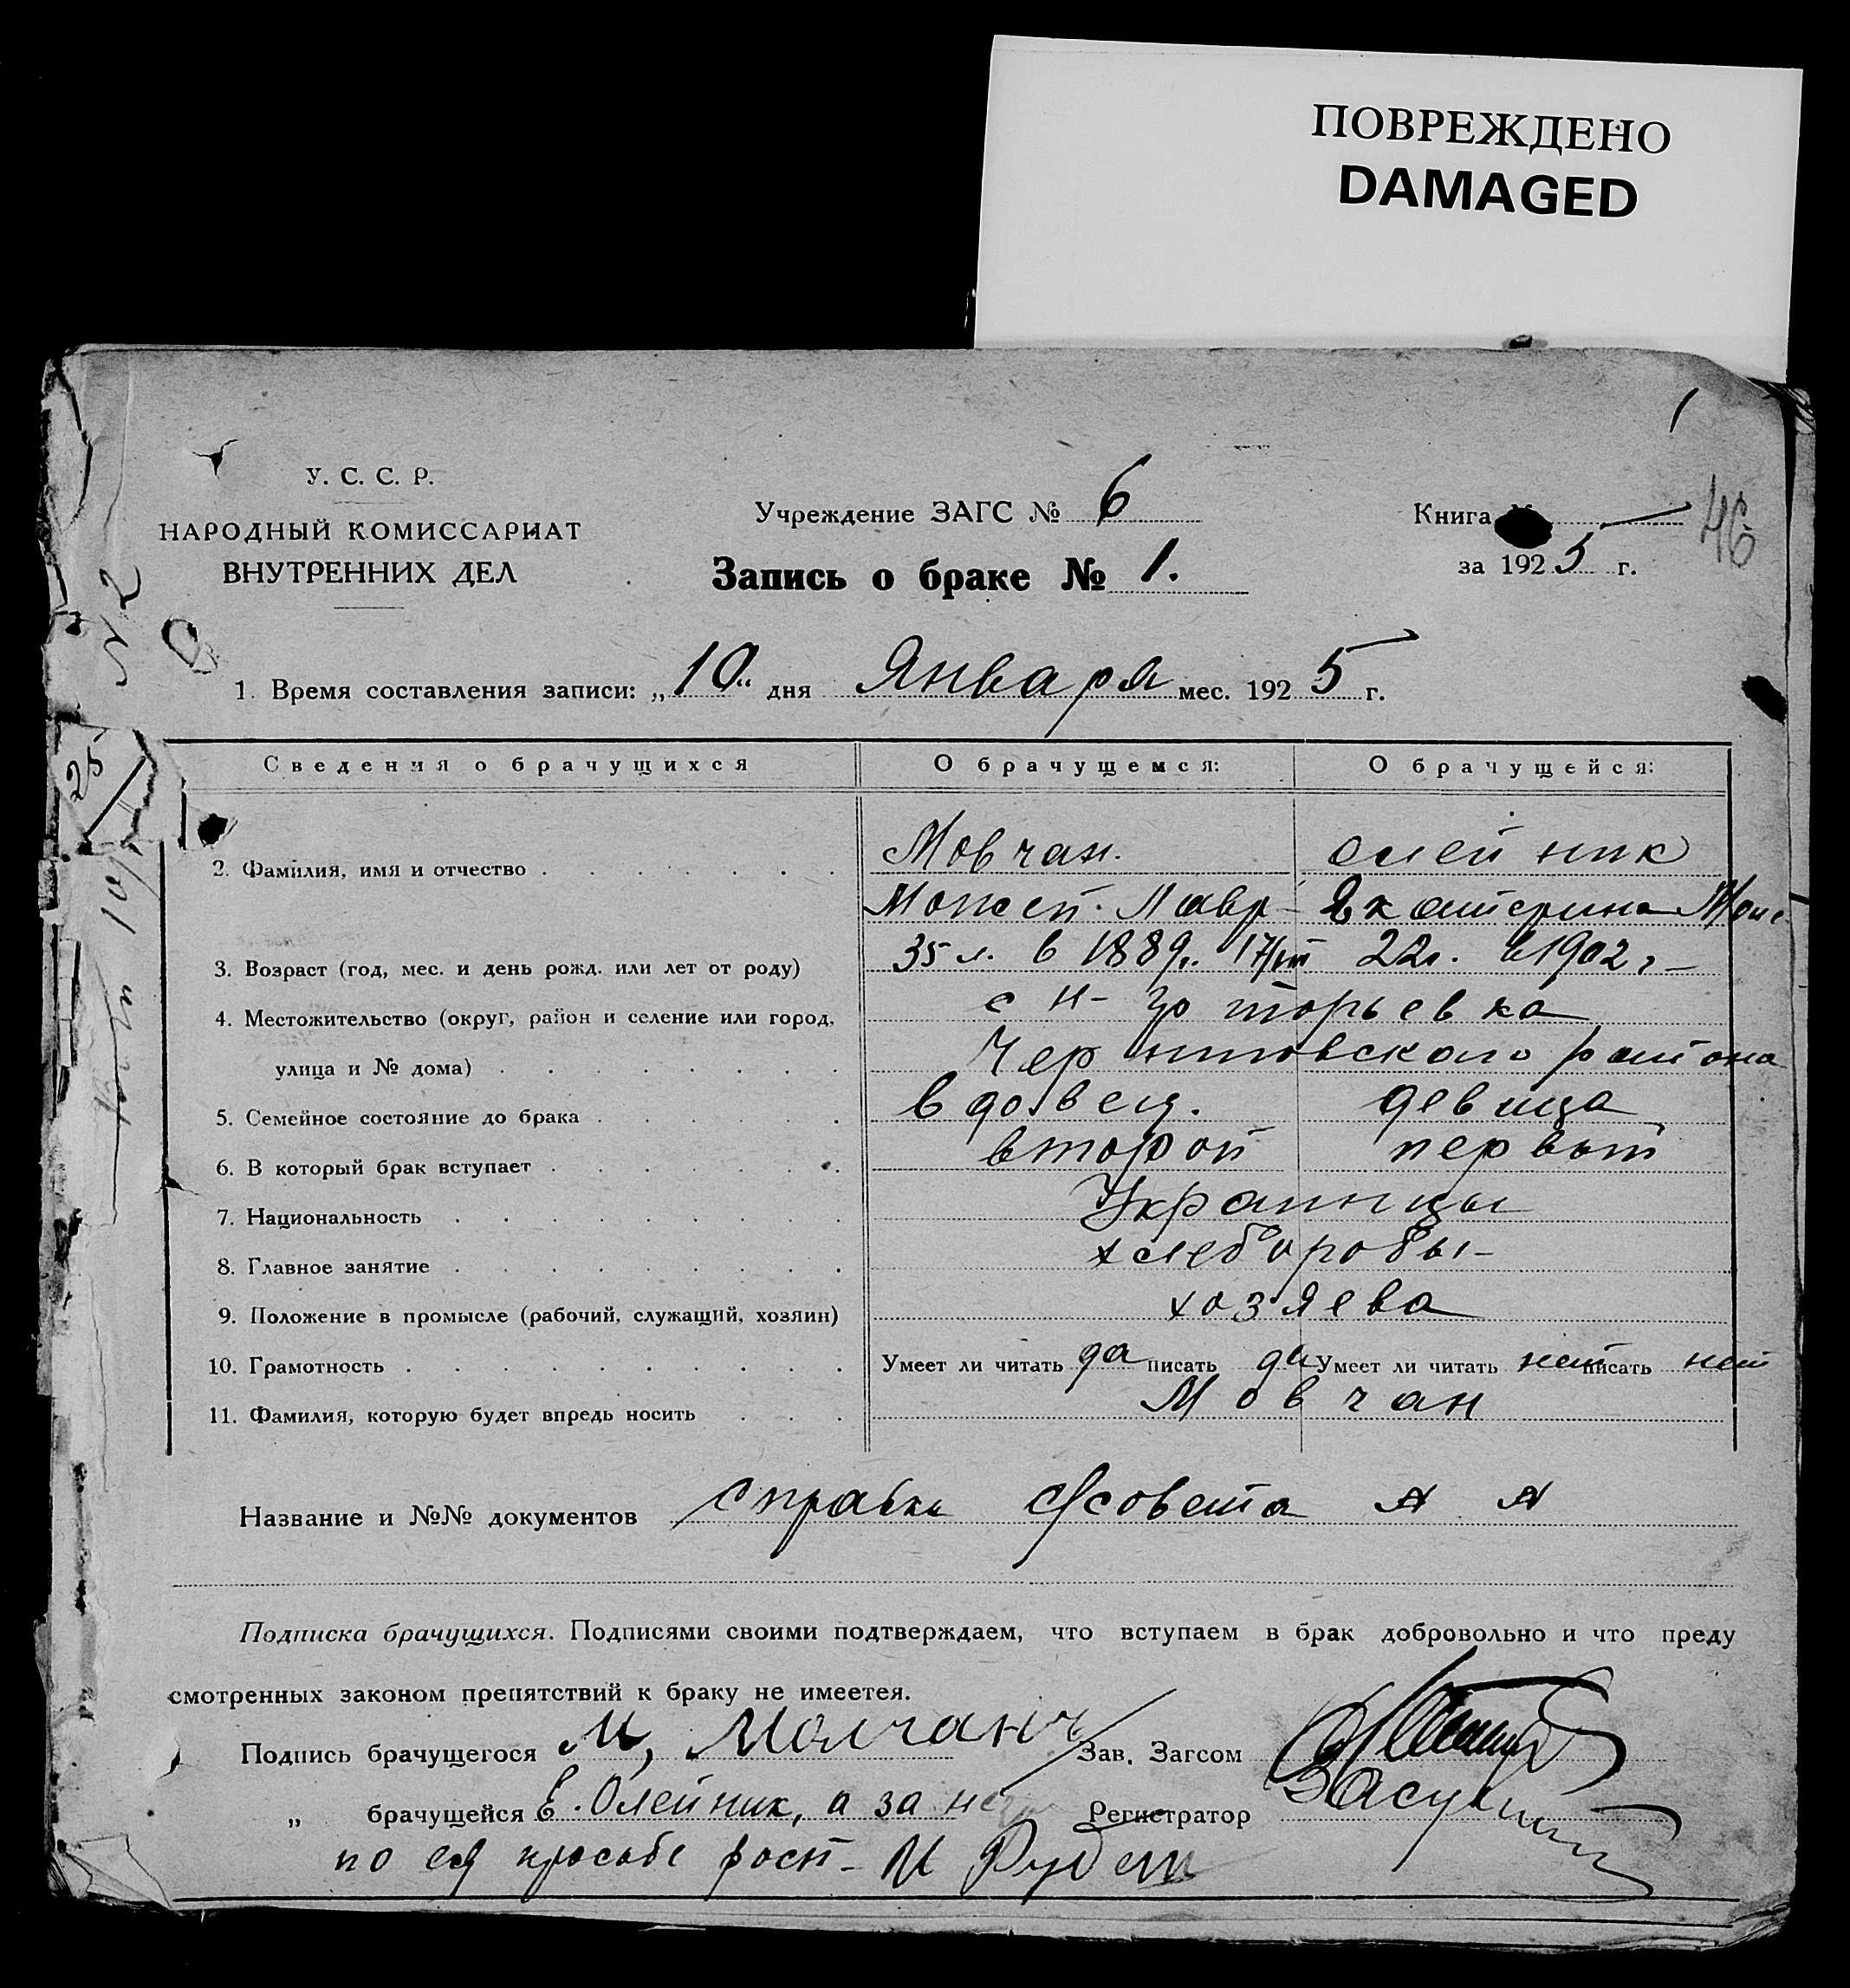 ПОВРЕЖДЕНО
DAMAGED
1
46
У. С. С. Р.
НАРОДНЫЙ КОМИССАРИАТ
ВНУТРЕННИХ ДЕЛ
Учреждение ЗАГС № 6
Книга
за 1925 г.
Запись о браке № 1.
1. Время составления записи: „10“ дня Января мес. 1925 г.
Сведения о брачущихся О брачущемся: О брачущейся:
2. Фамилия, имя и отчество Мовчан. олейник
Лавр- Екатерина
3. Возраст (год, мес. и день рожд. или лет от роду) 35 л. в 1889г. 22г. в 1902г-
4. Местожительство (округ, район и селение или город,
улица и № дома) района
5. Семейное состояние до брака вдовец. девица
6. В который брак вступает второй первый
7. Национальность Украинцы
8. Главное занятие хлеборобы-
9. Положение в промысле (рабочий, служащий, хозяин) хозяева
10. Грамотность Умеет ли читать да писать да Умеет ли читать нет писать нет
11. Фамилия, которую будет впредь носить Мовчан
Название и №№ документов справки с/совета
Подписка брачущихся. Подписями своими подтверждаем, что вступаем в брак добровольно и что преду
смотренных законом препятствий к браку не имеется.
Подпись брачущегося М, Молчанъ Зав. Загсом
„ брачущейся Е. Олейник, а за Регистратор
по ея просьбе
25